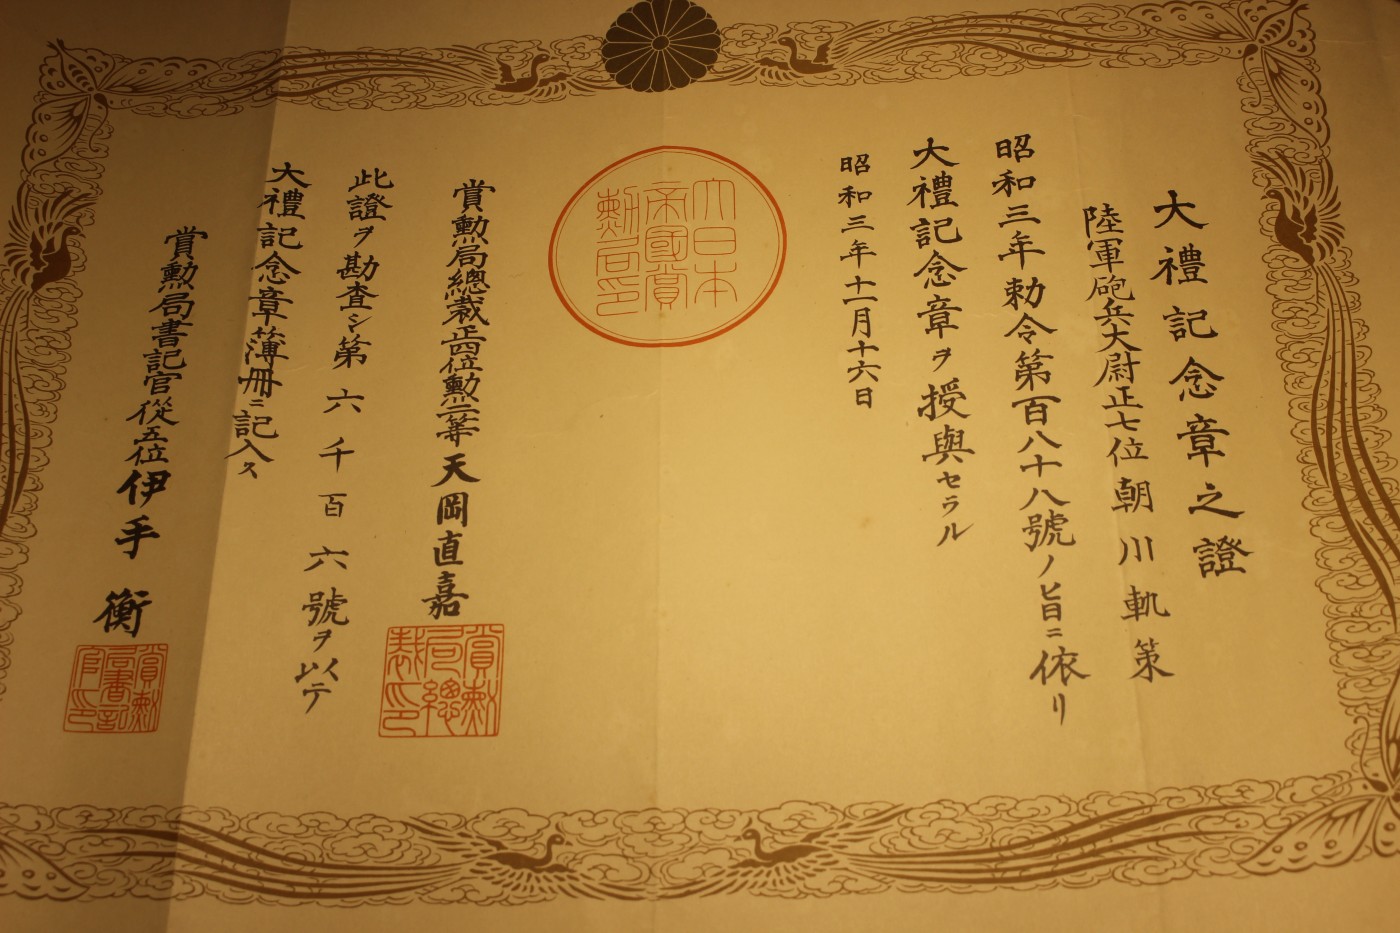 大禮記念章之證
陸軍砲兵大尉正七位朝川軌策
昭和三年勅令第百八十八號ノ旨ニ依リ
大禮記念章ヲ授與セラル
昭和三年十一月十六日
大日本
帝國賞
勲局印
賞勲局總裁正四位勲二等天岡直嘉
賞勲
局總
裁印
此證ヲ勘査シ第六千百六號ヲ以テ
大禮記念章簿冊ニ記入ス
賞勲局書記官從五位伊手衡
賞勲
局書記
官印